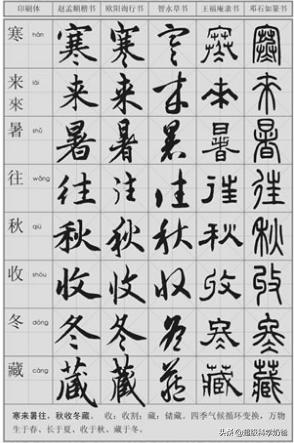 印刷体 赵孟頫楷书 欧阳询行书 智永草书 王福庵隶书 邓石如篆书
寒 hán 寒 寒 寒 寒 寒
来來 lái 来 来 来 来 来
暑 shǔ 暑 暑 暑 暑 暑
往 wǎng 往 往 往 往 往
秋 qiū 秋 秋 秋 秋 秋
收 shōu 收 收 收 收 收
冬 dōng 冬 冬 冬 冬 冬
藏 cáng 藏 藏 藏 藏 藏
寒来暑往,秋收冬藏。 收:收割;藏:储藏。四季气候循环变换,万物
生于春、长于夏、收于秋、藏于冬。